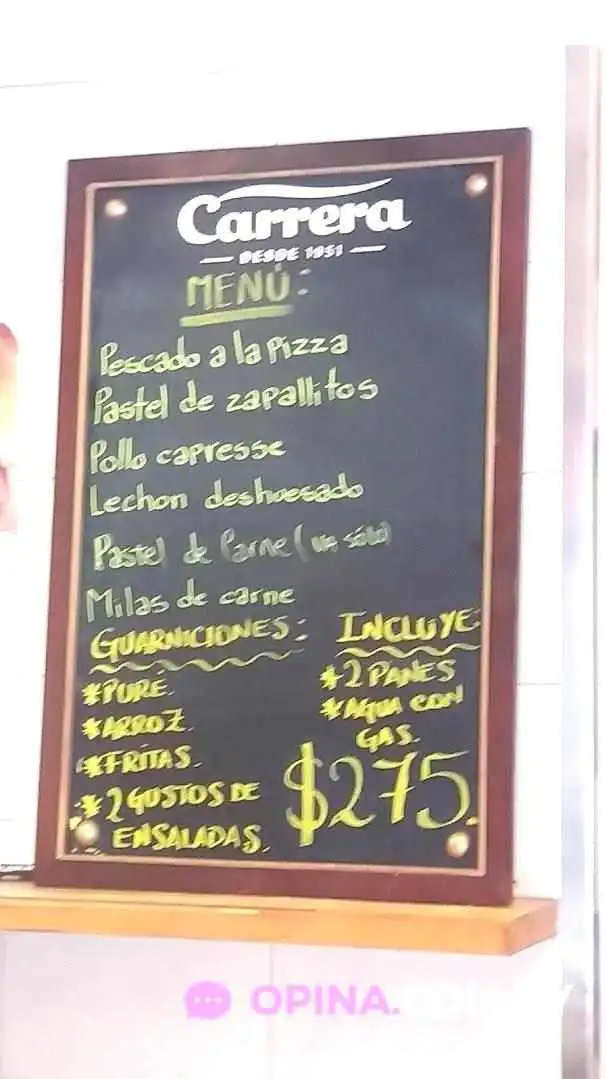 Carrera
DESDE 1951
MENÚ:
Pescado a la Pizza
Pastel de zapallitos
Pollo capresse
Lechon deshuesado
Pastel de Carne (va sólo)
Milas de carne
GUARNICIONES:
*PURE.
*ARROZ.
*FRITAS.
*2 GUSTOS DE
ENSALADAS.
INCLUYE:
*2 PANES
*AGUA CON
GAS.
$275.
OPINA.